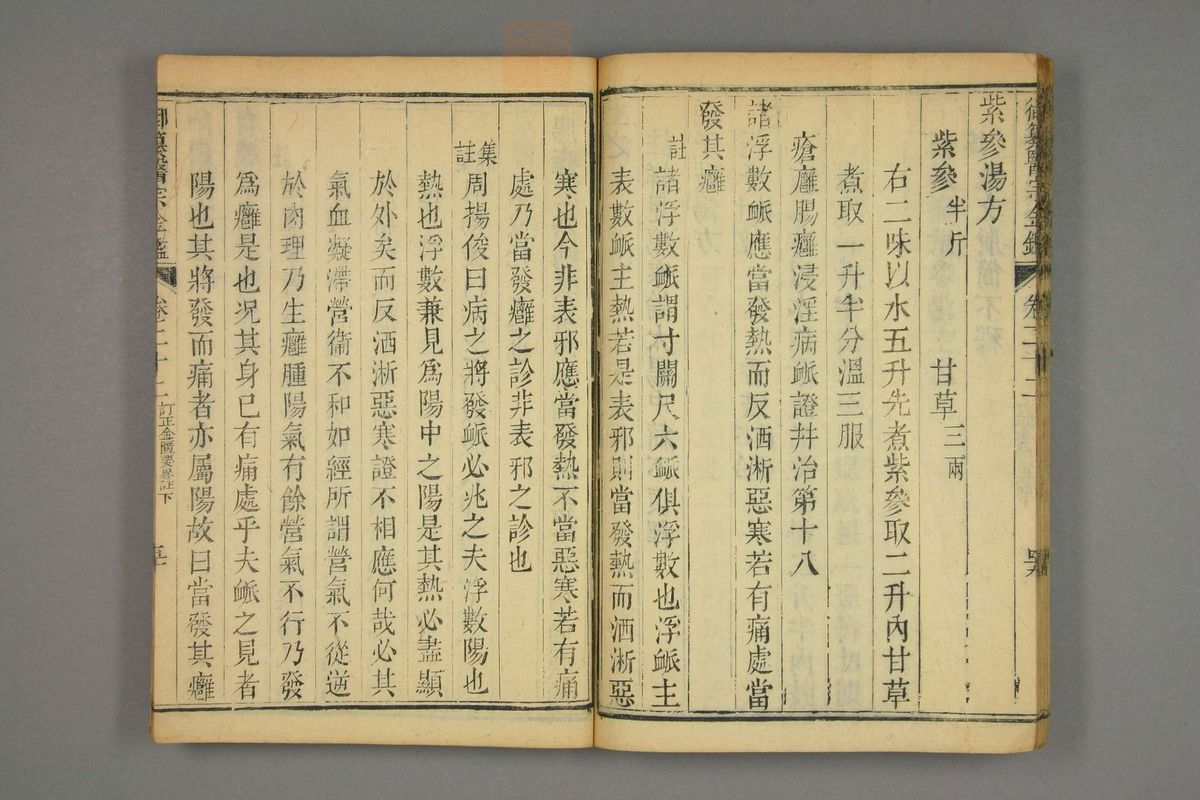 御纂醫宗金鑑 卷二十二
紫參湯方
紫參半斤 甘草三兩
右二味以水五升先煮紫參取二升內甘草
煮取一升半分溫三服
瘡癰腸癰浸淫病脈證并治第十八
諸浮數脈應當發熱而反洒淅惡寒若有痛處當
發其癰
註
諸浮數脈謂寸關尺六脈俱浮數也浮脈主
表數脈主熱若是表邪則當發熱而洒淅惡
寒也今非表邪應當發熱不當惡寒若有痛
處乃當發癰之診非表邪之診也
集註
周揚俊曰病之將發脈必兆之夫浮數陽也
熱也浮數兼見爲陽中之陽是其熱必盡顯
於外矣而反洒淅惡寒證不相應何哉必其
氣血凝滯營衞不和如經所謂營氣不從逆
於肉理乃生癰腫陽氣有餘營氣不行乃發
爲癰是也况其身已有痛處乎夫脈之見者
陽也其將發而痛者亦屬陽故曰當發其癰
御纂醫宗金鑑 卷二十二 訂正金匱要畧註下